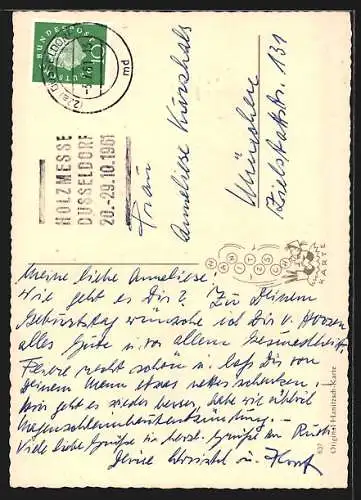 DEUTSCHE BUNDESPOST
10
HOLZMESSE
DÜSSELDORF
20.-29.10.1961
md
Frau
Anneliese
München
131
HANITZSCH
KARTE
Meine liebe Anneliese.
Wie geht es Dir? Zu Deinem
Geburtstag wünsche ich Dir v. Herzen
alles Gute u. vor allem Gesundheit.
Feiere recht schön u. laß Dir von
Deinem Mann etwas nettes schenken.
Mir geht es wieder besser, habe wie üblich
Magenschleimhautentzündung.
Viele liebe Grüße u. herzl. Grüße an
Deine Christel u. Horst
Original Hanitzsch-Karte